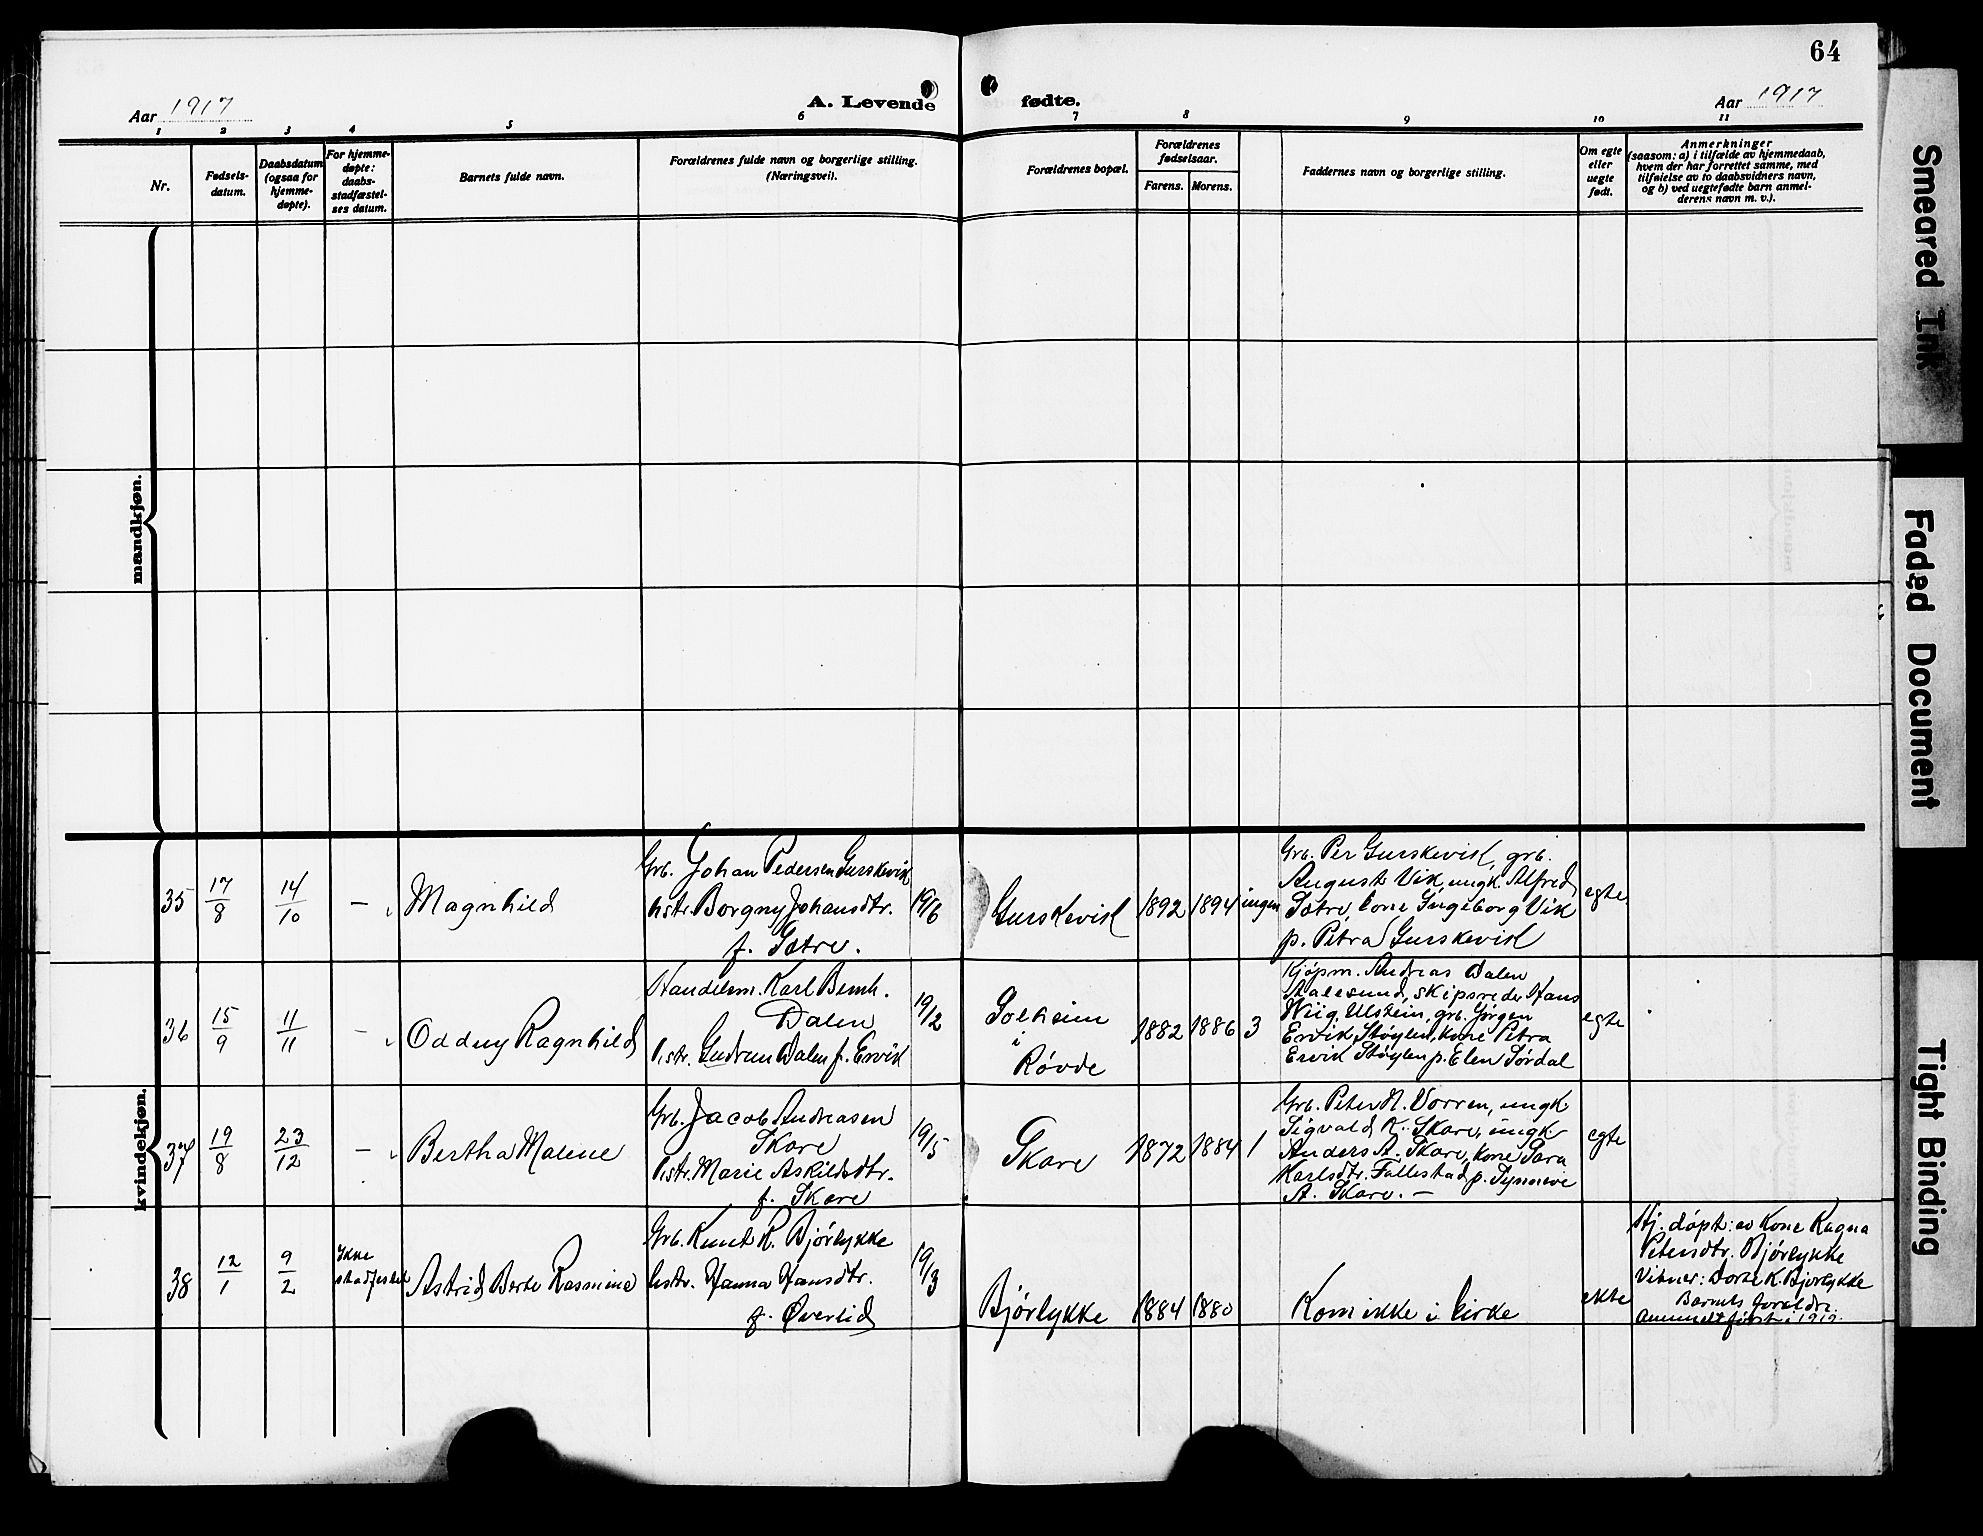 64
Aar 1917
A. Levende
fødte.
Aar 1917
1 2 3 4 5 6 7 8 9 10 11
Nr.
Fødsels-
datum.
Daabsdatum
(ogsaa for
hjemme-
døpte).
For hjemme-
døpte:
daabs-
stadfæstel-
ses datum.
Barnets fulde navn.
Forældrenes fulde navn og borgerlige stilling.
(Næringsvei).
Forældrenes bopæl.
Forældrenes
fødselsaar.
Farens. Morens.
Faddernes navn og borgerlige stilling.
Om egte
eller
uegte
født.
Anmerkninger
(saasom: a) i tilfælde av hjemmedaab,
hvem der har forrettet samme, med
tilføielse av to daabsvidners navn,
og b) ved uegtefødte barn anmel-
derens navn m. v.).
mandkjøn.
kvindekjøn.
35
17/8
14/10
-
Magnhild
Grb. Johan Pedersen Gurskevik
hstr. Borgny Johansdtr.
f. Sætre.
19/6
Gurskevik
1892
1894
ingen
Grb. Per Gurskevik, grb.
August Vik, ungk. Alfred
Sætre, kone Ingeborg Vik
p. Petra Gurskevik
egte
36
15/9
11/11
-
Oddny Ragnhild
Handelsm. Karl Bernh.
Dalen
hstr. Gudrun Dalen f. Ervik
19/2
Solheim
i
Røvde
1882
1886
3
Kjøpm. Andreas Dalen
Aalesund, skipsreder Hans
Wiig, Ulstein, grb. Jørgen
Ervik Støylen, kone Petra
Ervik Støylen p. Elen Sørdal
egte
37
19/8
23/12
-
Bertha Malene
Grb. Jacob Andreasen
Skare
hstr. Marie Askildsdtr.
f. Skare
19/5
Skare
1872
1884
1
Grb. Peter N. Vorren, ungk.
Sigvald K. Skare, ungk.
Anders A. Skare, kone Sara
Karlsdtr. Fallestad p. Synneve
A. Skare. -
egte
38
12/1
9/2
Ikke
stadfestet
Astrid Berte Rasmine
Grb. Knut R. Bjørlykke
hstr. Hanna Hansdtr.
f. Øverlid
19/3
Bjørlykke
1884
1880
Kom ikke i kirke
ekte
Hj. døpt: av Kone Ragna
Petersdtr. Bjørlykke
Vitner: Dorte K. Bjørlykke
Barnets foreldre.
Anmeldt først i 1919.
Smeared Ink
Faded Document
Tight Binding